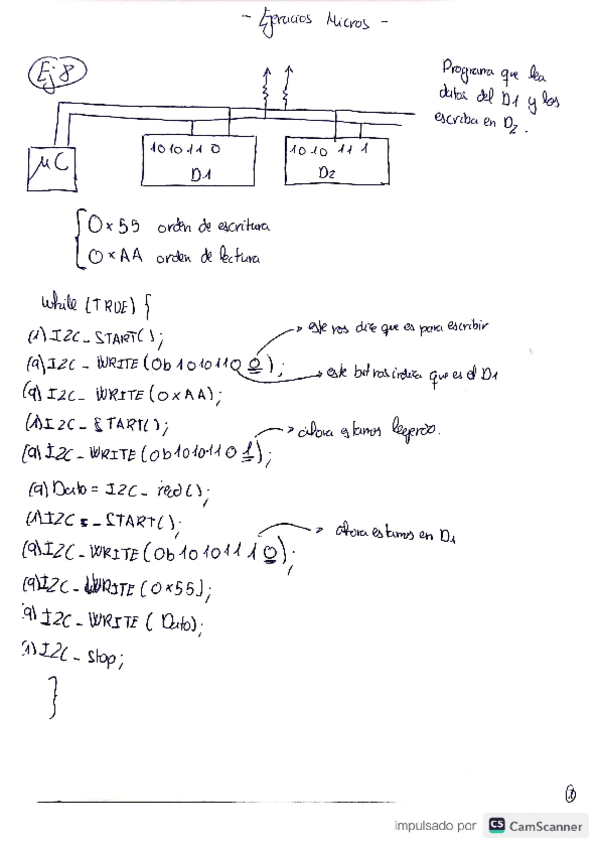 - Ejercicios Micros -
Ej 8
Programa que lea
datos del D1 y los
escriba en D2.
μC
1010110
D1
1010111
D2
0x55 orden de escritura
0xAA orden de lectura
while (TRUE) {
(1) I2C_START();
este nos dice que es para escribir
(9) I2C_WRITE(0b10101100);
este bit nos indica que es el D1
(9) I2C_WRITE(0xAA);
(1) I2C_START();
ahora estamos leyendo.
(9) I2C_WRITE(0b10101101);
(9) Dato = I2C_read();
(1) I2C_START();
ahora estamos en D1
(9) I2C_WRITE(0b10101110);
(9) I2C_WRITE(0x55);
(9) I2C_WRITE(Dato);
(1) I2C_stop;
}
1
impulsado por CS CamScanner